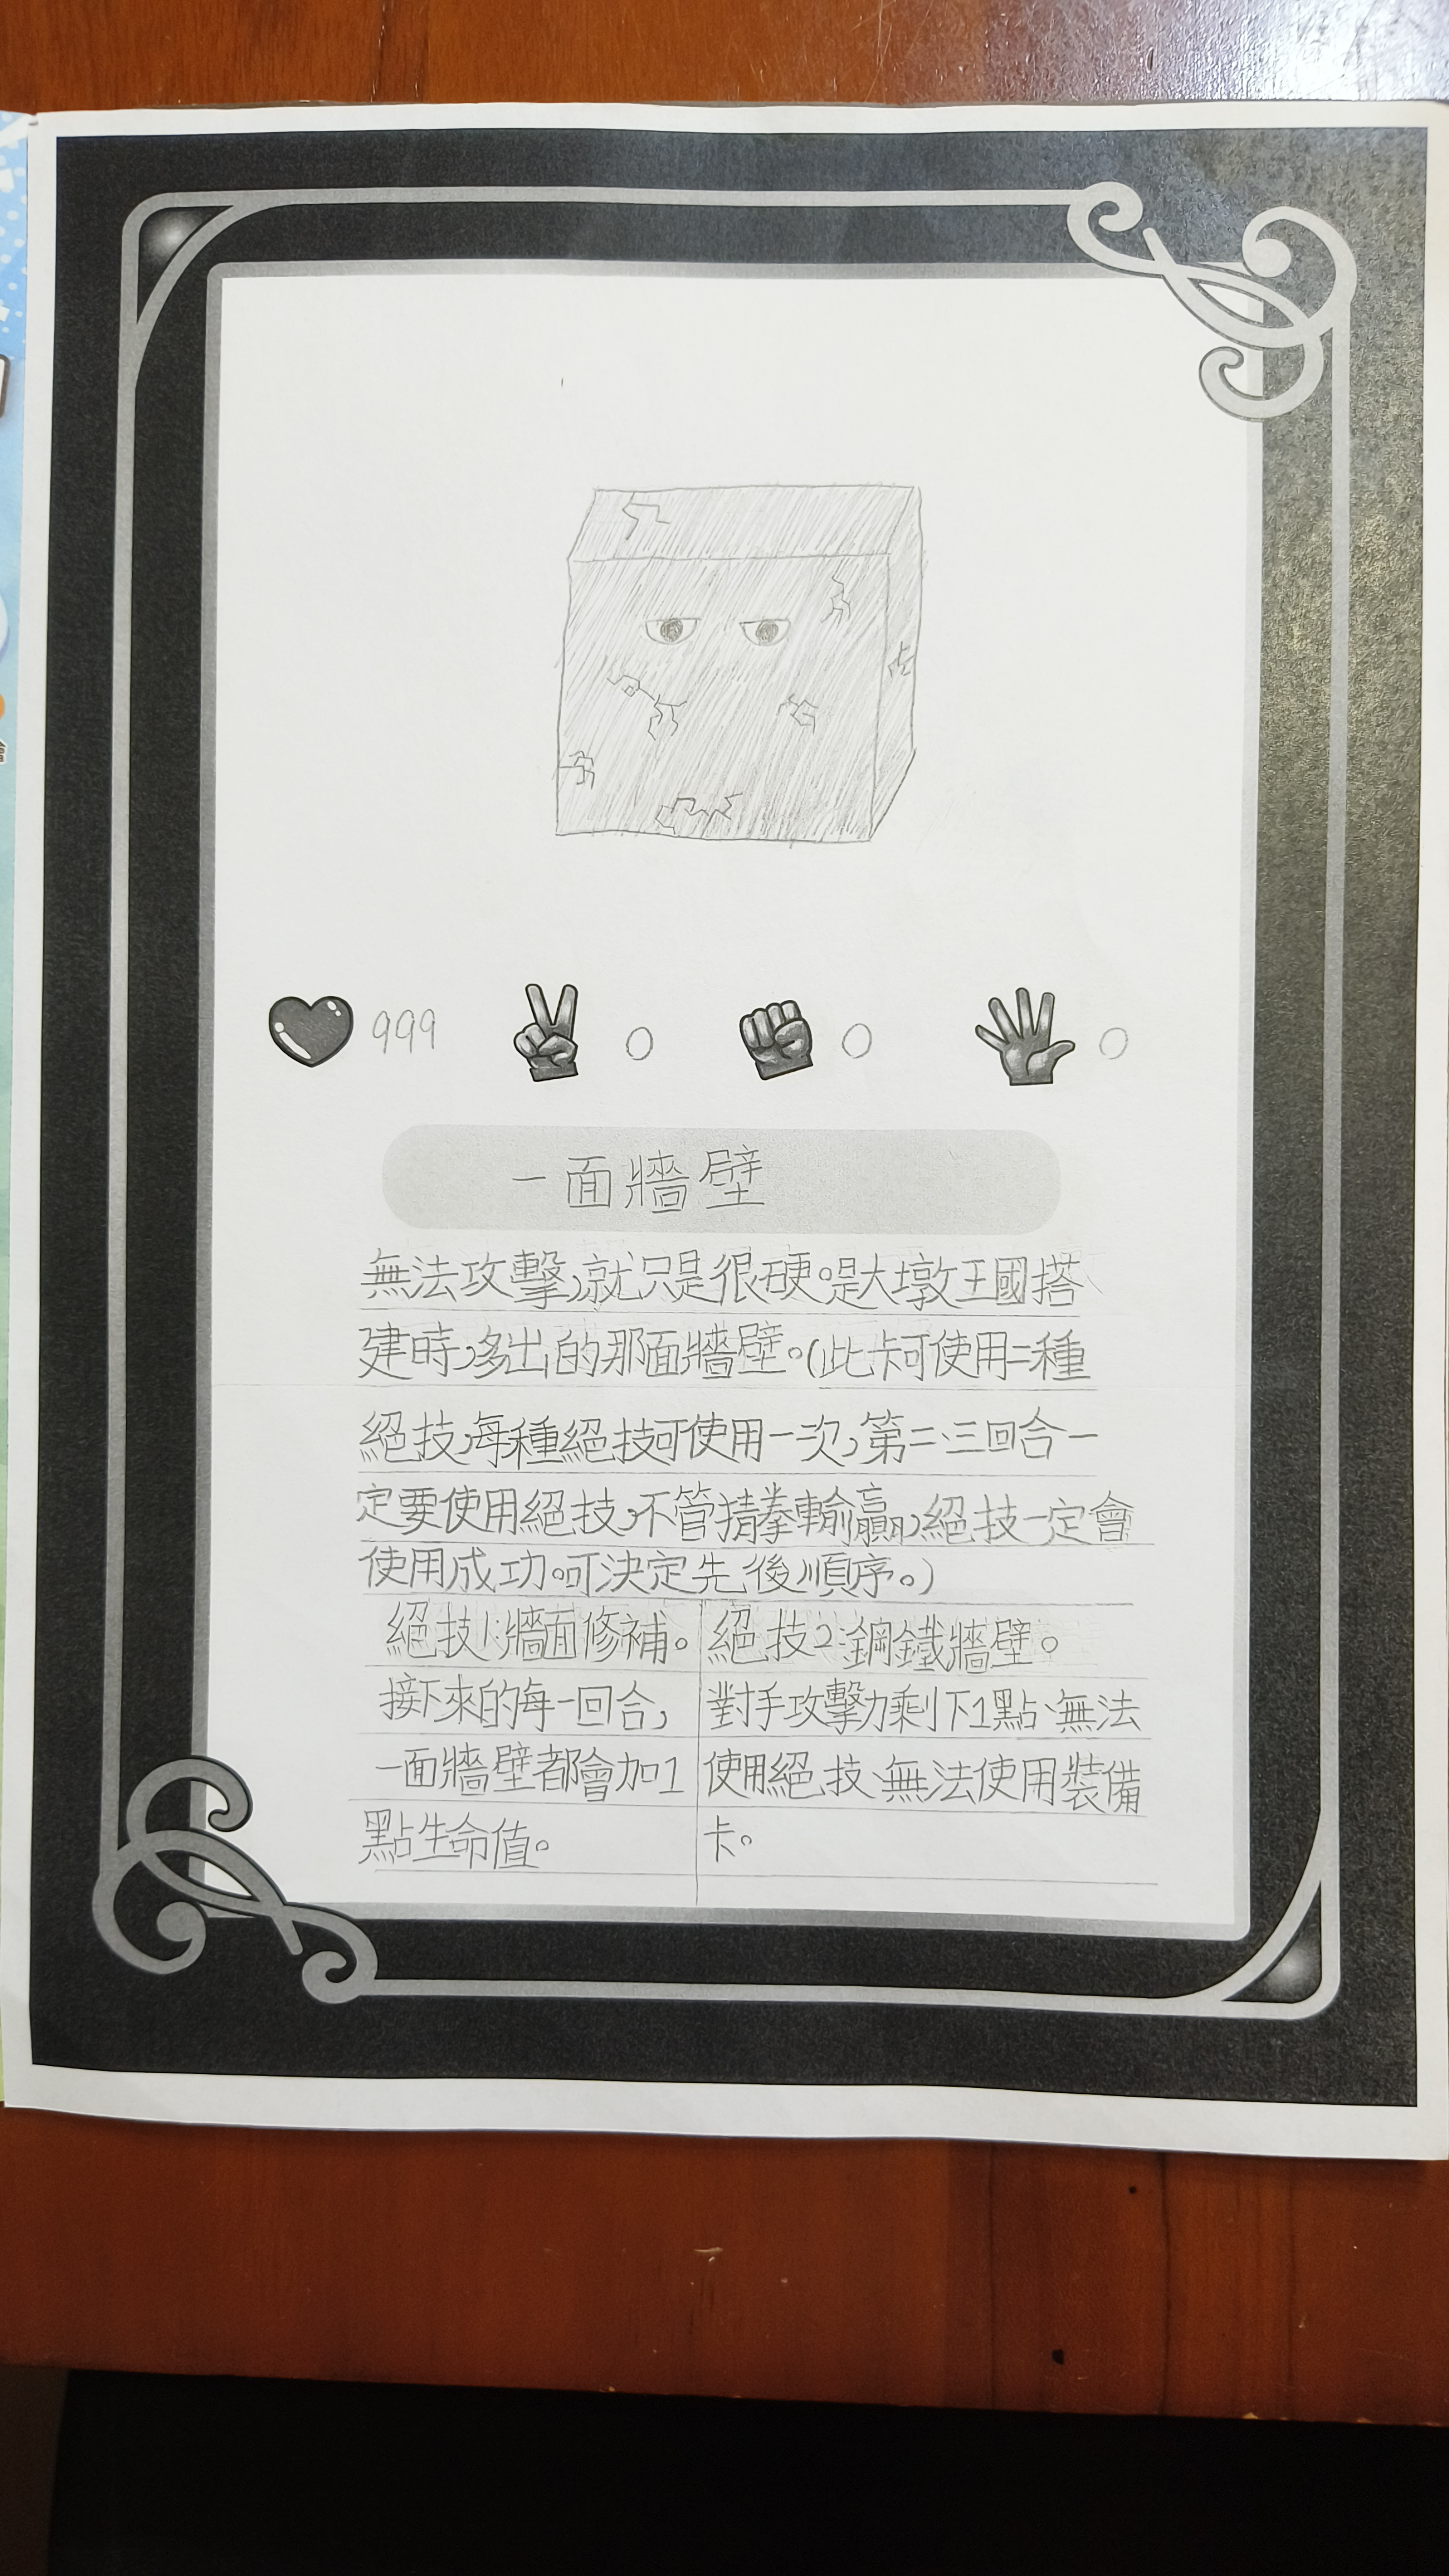 999 0 0 0
一面牆壁
無法攻擊,就只是很硬。是大墩王國搭
建時,多出的那面牆壁。(此卡可使用二種
絕技,每種絕技可使用一次,第二、三回合一
定要使用絕技,不管猜拳輸贏,絕技一定會
使用成功。可決定先後順序。)
絕技1:牆面修補。
接下來的每一回合,
一面牆壁都會加1
點生命值。
絕技2:鋼鐵牆壁。
對手攻擊力剩下1點、無法
使用絕技、無法使用裝備
卡。